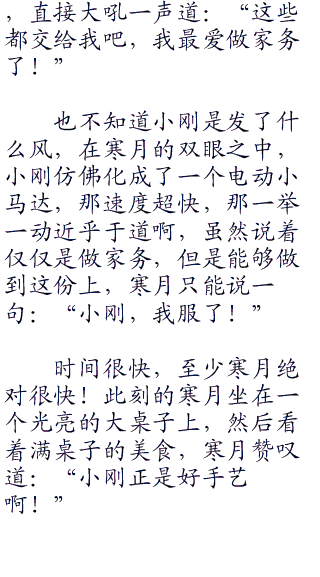 ，直接大吼一声道：“这些
都交给我吧，我最爱做家务
了！”
也不知道小刚是发了什
么风，在寒月的双眼之中，
小刚仿佛化成了一个电动小
马达，那速度超快，那一举
一动近乎于道啊，虽然说着
仅仅是做家务，但是能够做
到这份上，寒月只能说一
句：“小刚，我服了！”
时间很快，至少寒月绝
对很快！此刻的寒月坐在一
个光亮的大桌子上，然后看
着满桌子的美食，寒月赞叹
道：“小刚正是好手艺
啊！”